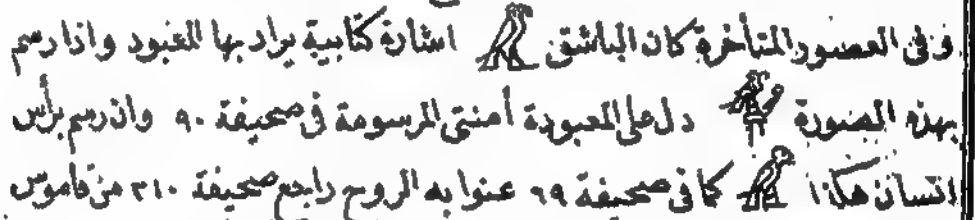 وفى العصور المتأخرة كان الباشق 𓅃 اشارة كتابية يراد بها المعبود واذا رسم
بهذه الصورة 𓅄 دل على المعبودة أمنتى المرسومة فى صحيفة ٩٠ وان رسم برأس
انسان هكذا 𓅽 كما فى صحيفة ٩٩ عنوا به الروح راجع صحيفة ٢١٠ من قاموس